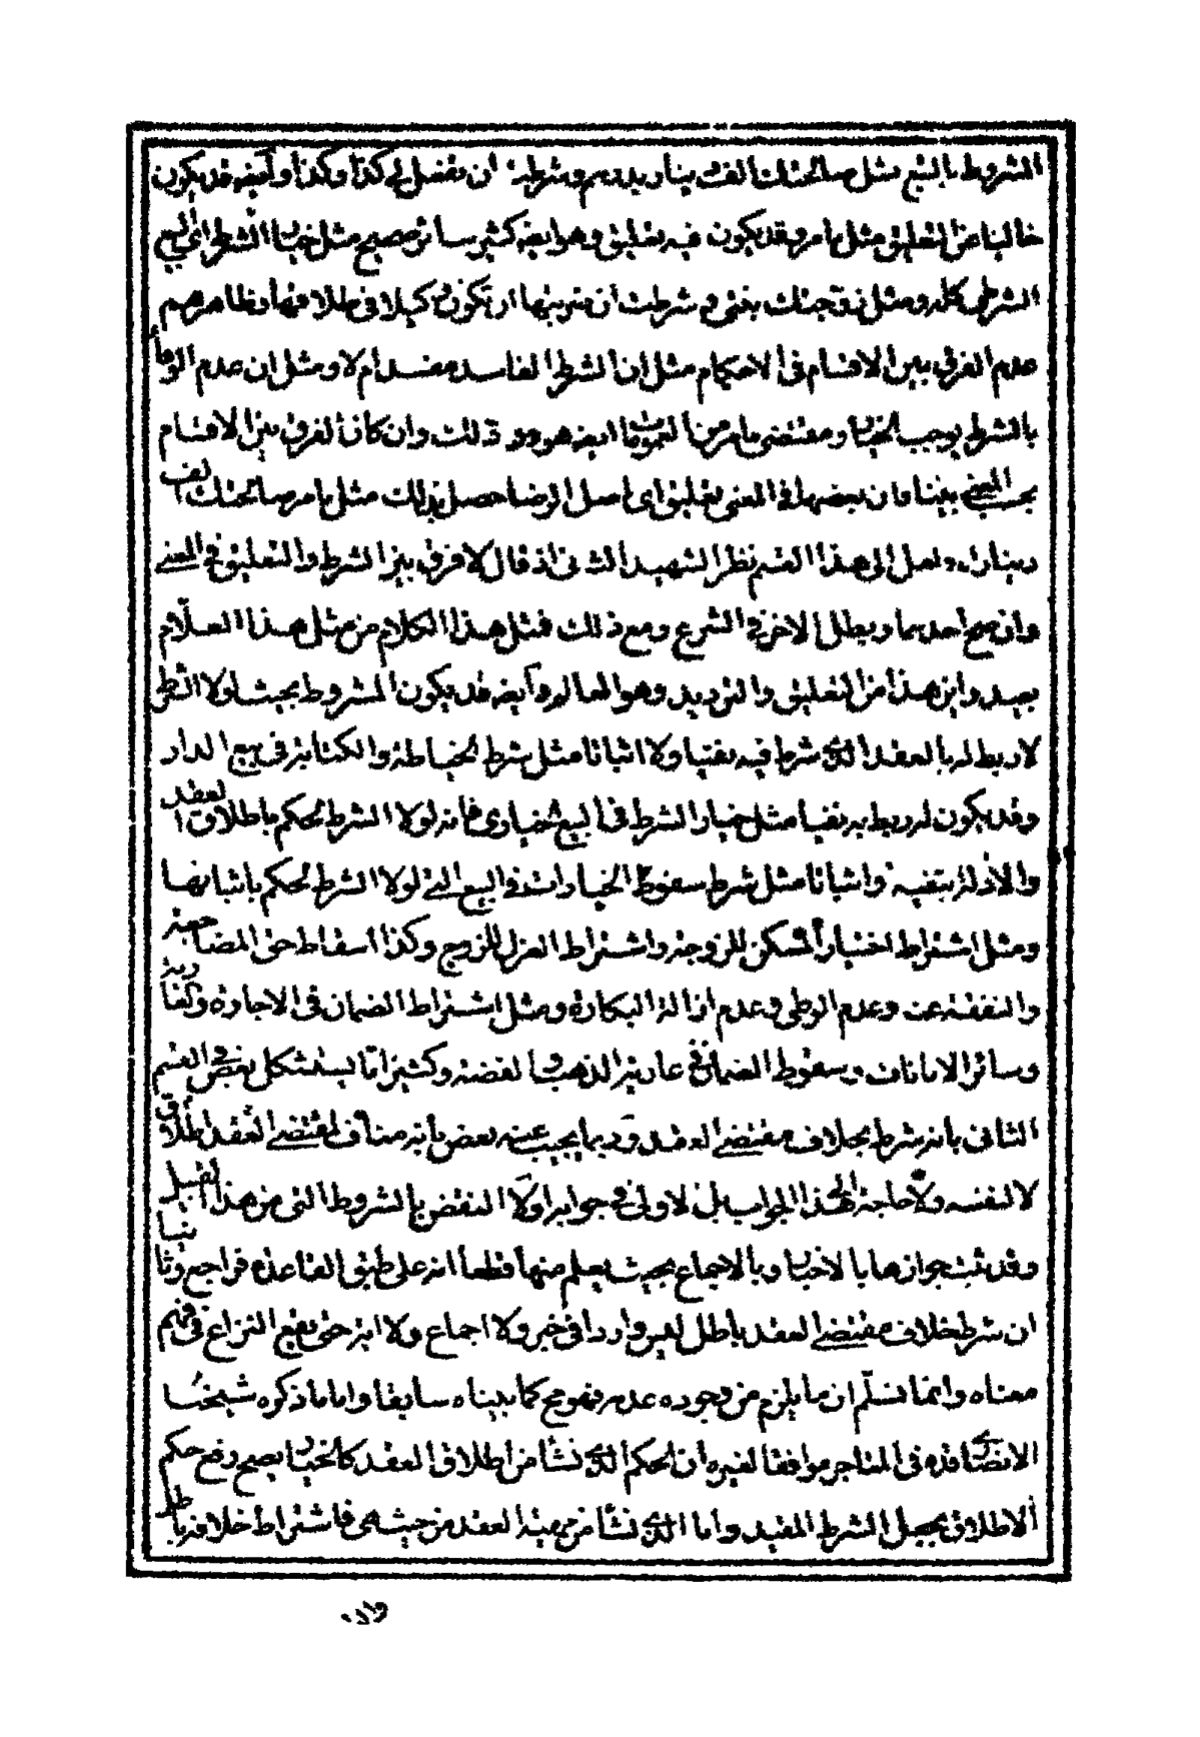 المشروط بالبيع مثل صالحتك الف دينار بدرهم وشرطت ان تفعل لى كذا وكذا وأيضه قد يكون
خاليا عن التعليق مثل ما مر وقد يكون فيه تعليق وهو ايضه كثير سائر صحيح مثل خيار الشرط اى البيع
الشرطى كله ومثل زوجتك بنتى وشرطت ان تربيها او تكون كيلا فى طلاقها وظاهرهم
عدم الفرق بين الاقسام فى الاحكام مثل ان الشرط الفاسد مفسد أم لا ومثل ان عدم الوفاء
بالشرط يوجب الخيار ومقتضى ما مر من العمومات ايضه هو ذلك وان كان الفرق بين الاقسام
بحسب المعنى بينا فان بعضها فى المعنى تعليق اى اصل الرضا حصل بذلك مثل ما مر صالحتك الف
دينار اه ولعل الى هذا القسم نظر الشهيد الثانى اذ قال لا فرق بين الشرط والتعليق فى المعنى
وان صح احدهما وبطل الاخر فى الشرع ومع ذلك فمثل هذا الكلام من مثل هذا العلام
بعيد واين هذا من التعليق والترديد وهو العالم وأيضه قد يكون المشروط بحيث لولا الشرط
لا ربط له بالعقد الذى شرط فيه نفيا ولا اثباتا مثل شرط الخياطة والكتابة فى بيع الدار
وقد يكون له ربط به نفيا مثل خيار الشرط فى البيع الخيارى فانه لولا الشرط لحكم باطلاق العقد
والأدلة بنفيه واثباتا مثل شرط سقوط الخيارات فى البيع التى لولا الشرط لحكم باثباتها
ومثل اشتراط اختيار المسكن للزوجة واشتراط العزل للزوج وكذا اسقاط حق المضاجعة
والنفقة عنه وعدم الوطى وعدم ازالة البكارة ومثل اشتراط الضمان فى الاجارة والعارية
وسائر الامانات وسقوط الضمان فى عارية الذهب والفضة وكثيرا ما يستشكل بعض فى القسم
الثانى بانه شرط بخلاف مقتضى العقد وربما يجيب عنه بعض بأنه مناف لمقتضى العقد اطلاقى
لا لنفسه ولا حاجة لهذا الجواب بل الاولى فى جوابه اولا النقض بالشروط التى من هذا القبيل
وقد ثبت جوازها بالاخبار وبالاجماع بحيث يعلم منها قطعا انه على طبق القاعدة فراجع وثانيا
ان شرط خلاف مقتضى العقد باطل ليس واردا فى خبر ولا اجماع ولا اية حتى يقع النزاع فى فهم
معناه وانما نسلم ان ما يلزم من وجوده عدمه فهو مح كما بيناه سابقا واما ما ذكره شيخنا
الانصارى قده فى المتاجر موافقا لغيره ان الحكم الذى نشأ من اطلاق العقد كالخيار يصح رفع حكم
الاطلاق بجعل الشرط المفيد واما الذى نشأ من مهية العقد من حيث هى فاشتراط خلافه باطل